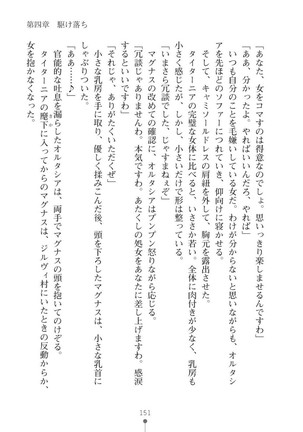 第四章　駆け落ち
「あなた、女をコマすのは得意なのでしょ。思いっきり楽しませるんですわ」
「ああ、分かったよ。やればいいんだろ、やれば」
いつも自分のことを毛嫌いしている女だ。わけが分からないと思いながらも、オルタシアを先ほどのソファーにつれていき、仰向けに寝かせる。
そして、キャミソールドレスの肩紐を外して、胸元を露出させた。
タイターニアの完璧な女体に比べると、いささか若い。全体に肉付きが少なく、乳房も小さく感じたが、しかし、小さいだけで形は整っている。
「いまさら冗談だった、じゃすまねぇぞ」
マグナスの改めての確認に、オルタシアはプンプン怒りながら応じる。
「冗談じゃありませんわ。本気ですわ。あたくしの処女をあなたに差し上げますわ。感涙するといいですわ」
「それじゃ、ありがたくいただくぜ」
小さな乳房を手に取り、優しく揉みこんだ後、頭を下ろしたマグナスは、小さな乳首にしゃぶりついた。
「ああ……♪」
官能的な吐息を漏らしたオルタシアは、両手でマグナスの頭を抱いてのけぞる。
タイターニアの麾下に入ってからのマグナスは、ジルヴィ村にいたときの反動からか、女を抱かなくなった。
151